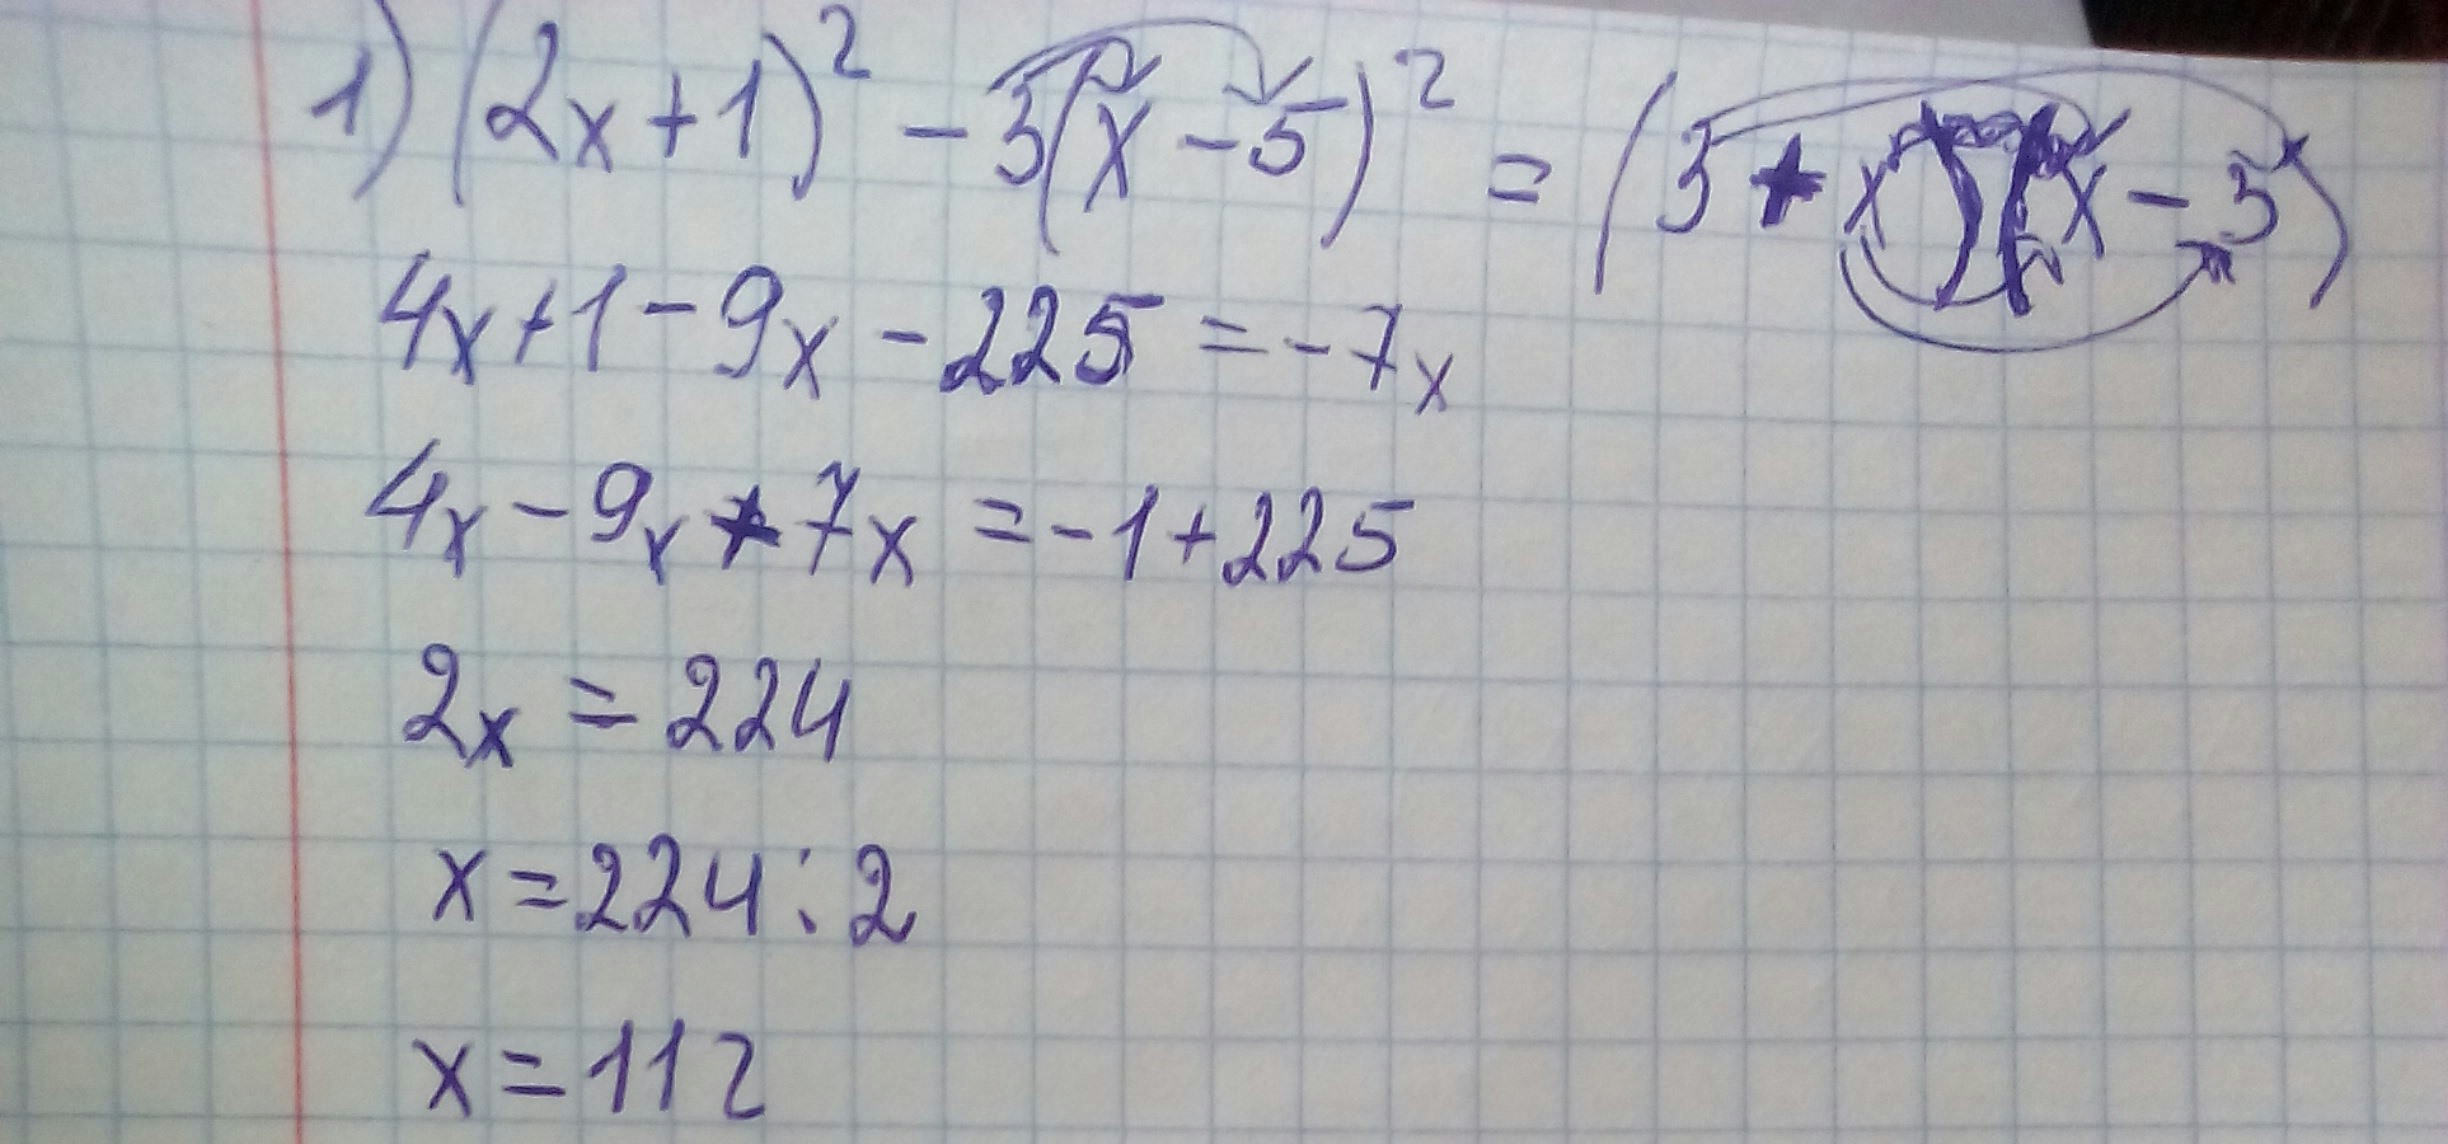 1) (2x+1)² - 3(x-5)² = (3+x)(x-3)
4x+1-9x-225=-7x
4x-9x+7x=-1+225
2x=224
x=224:2
x=112